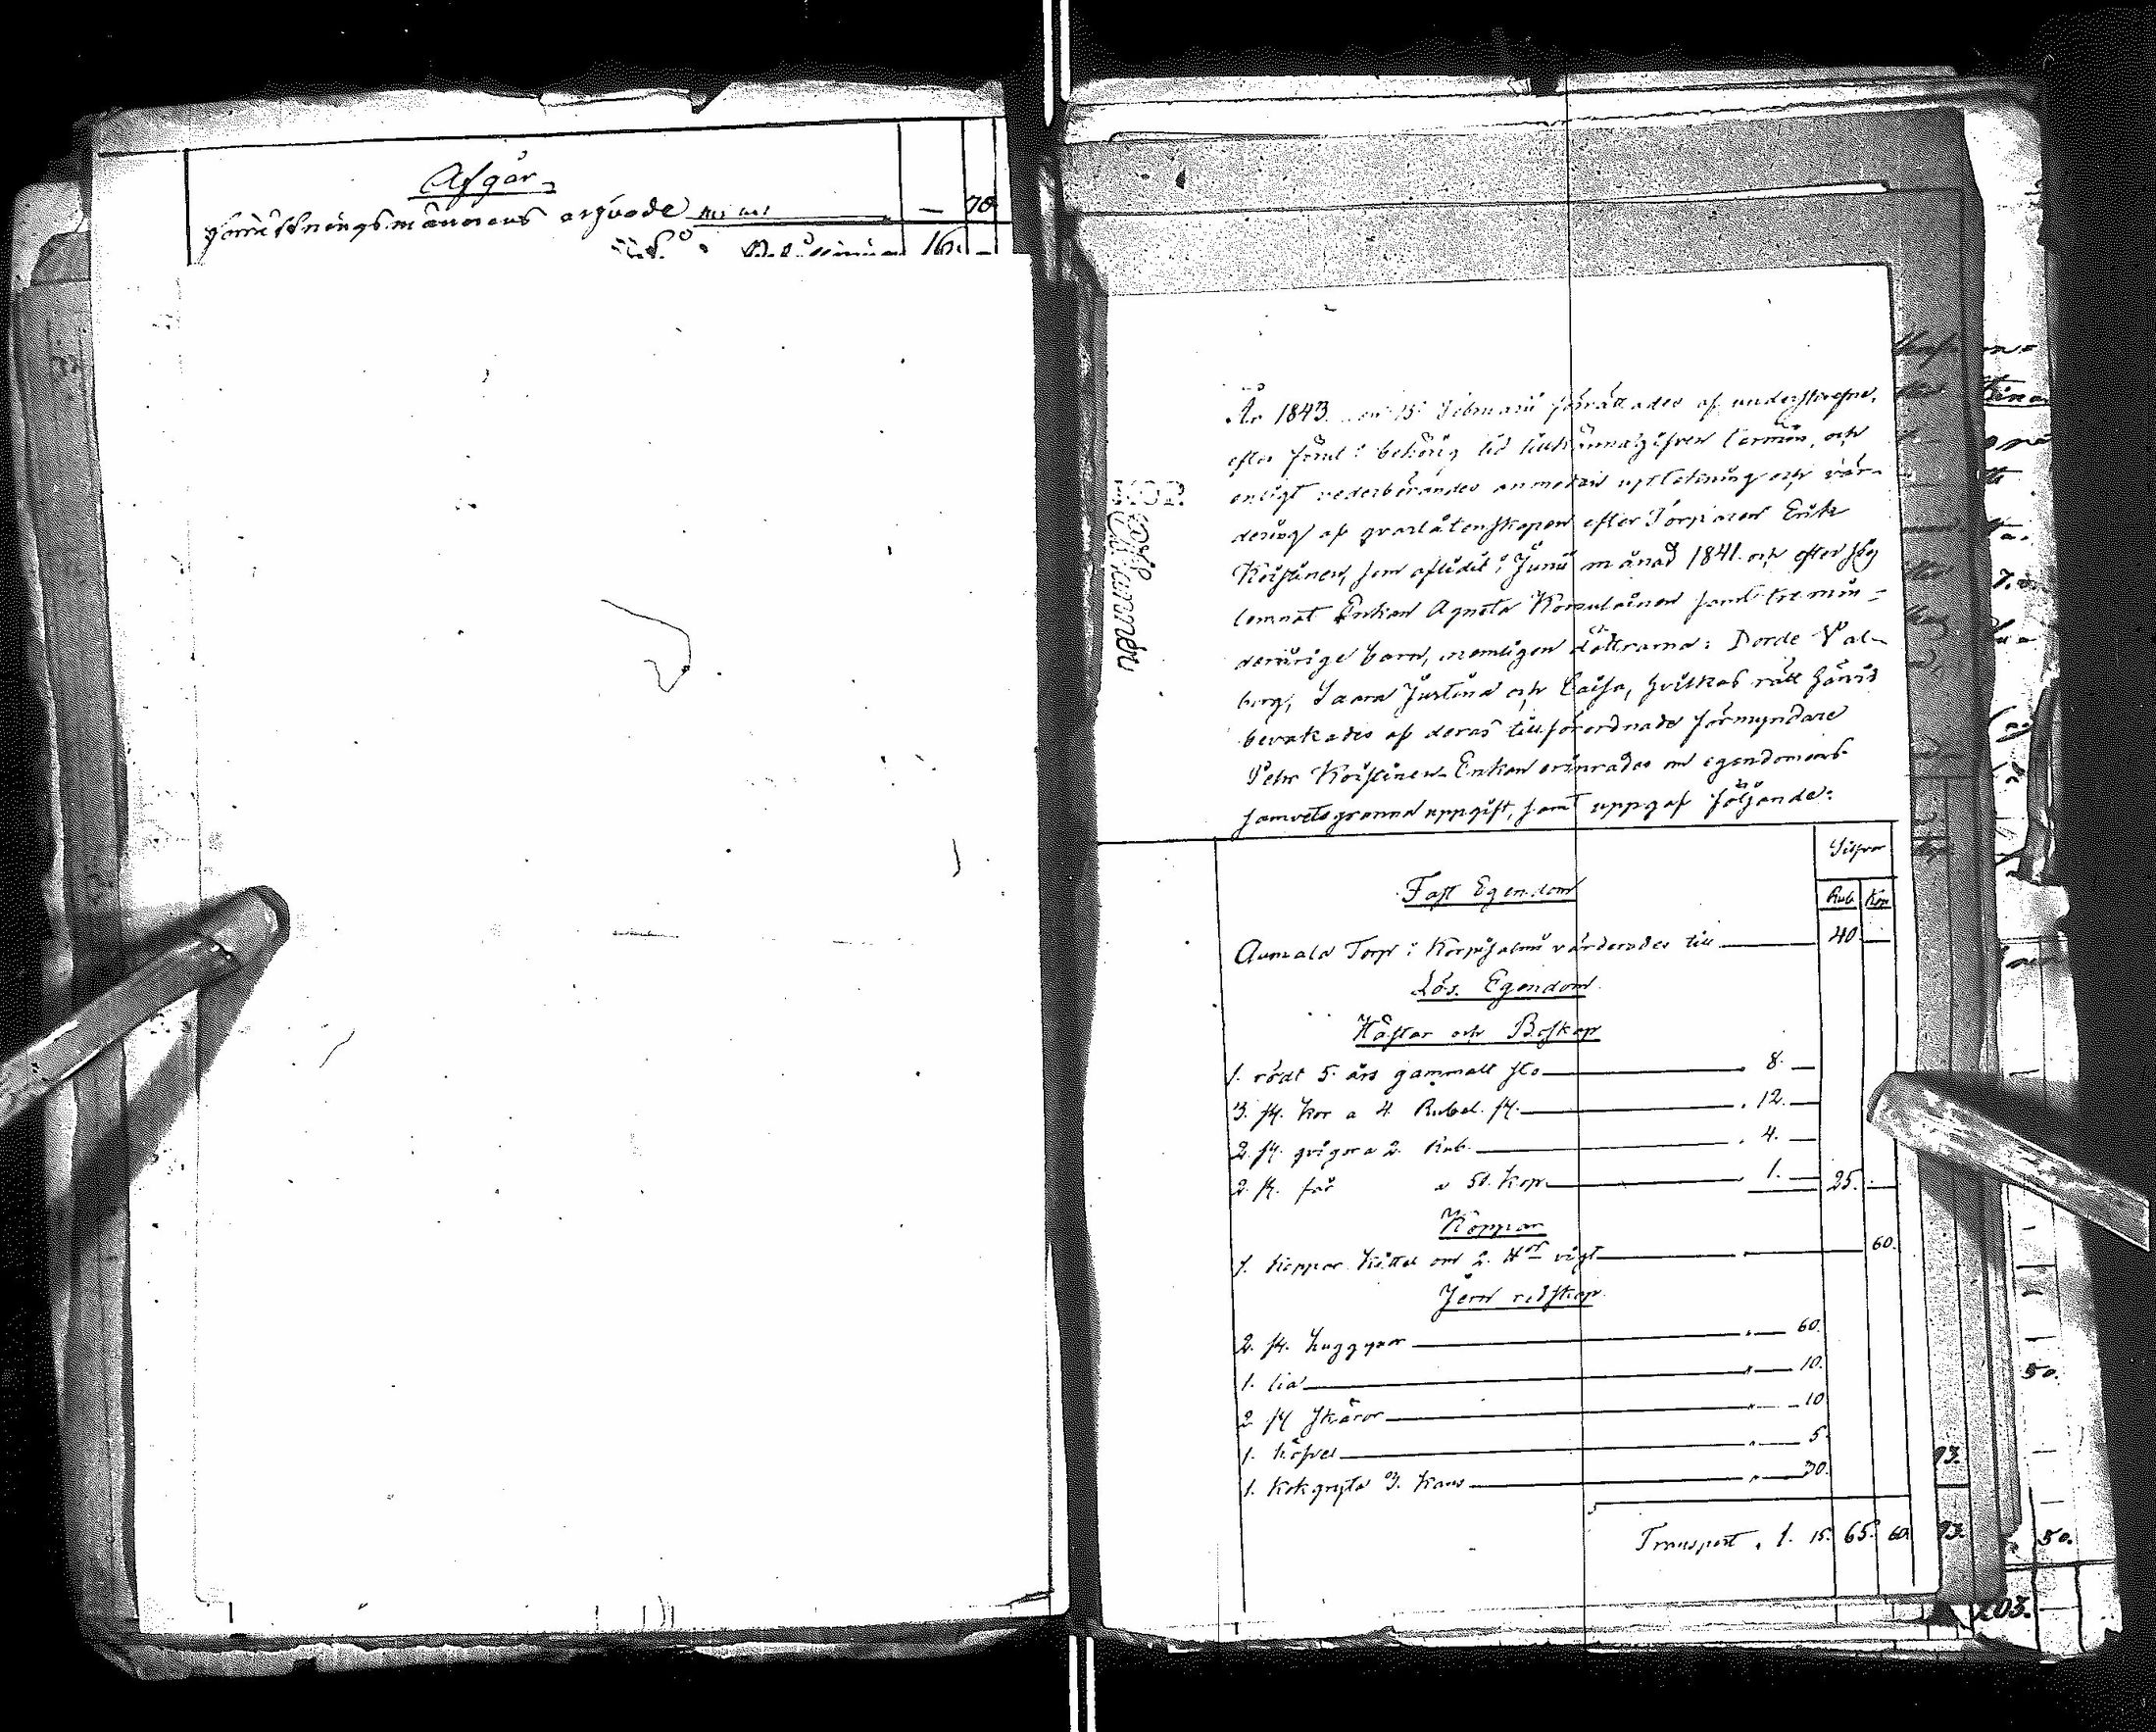 Afgår
förrättningsmännens arfvode — 70
16. —
År 1843 den 15 Februarii förrättades af undertecknade,
efter förut i behörig tid tillkännagifven termin, och
enligt vederbörandes anmodan uptekning och vär-
dering af qvarlåtenskapen efter Torparen Erik
Koistinen, som aflidit i Junii månad 1841. och efter sig
lemnat Enkan Agneta Komulainen samt tre min-
deråriga barn, nemligen döttrarna: Dorde Val-
borg, Saara Justina och Caisa, hvilkas rätt härvid
bevakades af deras tillförordnade förmyndare
Pehr Koistinen. Enkan erinrades om egendomens
samvetsgranna uppgift, samt uppgaf följande:
Silfver
Rub. Kop
Fast Egendom
Aumala Torp i Korpisalmi värderades till 40. —
Lös Egendom
Hästar och Boskap
1. rödt 5. års gammalt sto 8. —
3. st. kor a 4 Rubel st. 12. —
2. st. qvigor a 2. Rub. 4. —
2. st. får a 50. Kop 1. — 25. —
Koppar
1. koppar kittel om 2. vigt 60.
Jern redskap
2. st. huggyxor — 60.
1. lia — 10.
2 st skäror — 10
1. höfvel — 5.
1. kokgryta 3. kans — 30.
Transport . 1. 15. 65. 60.
93.
93.
50.
50.
203.